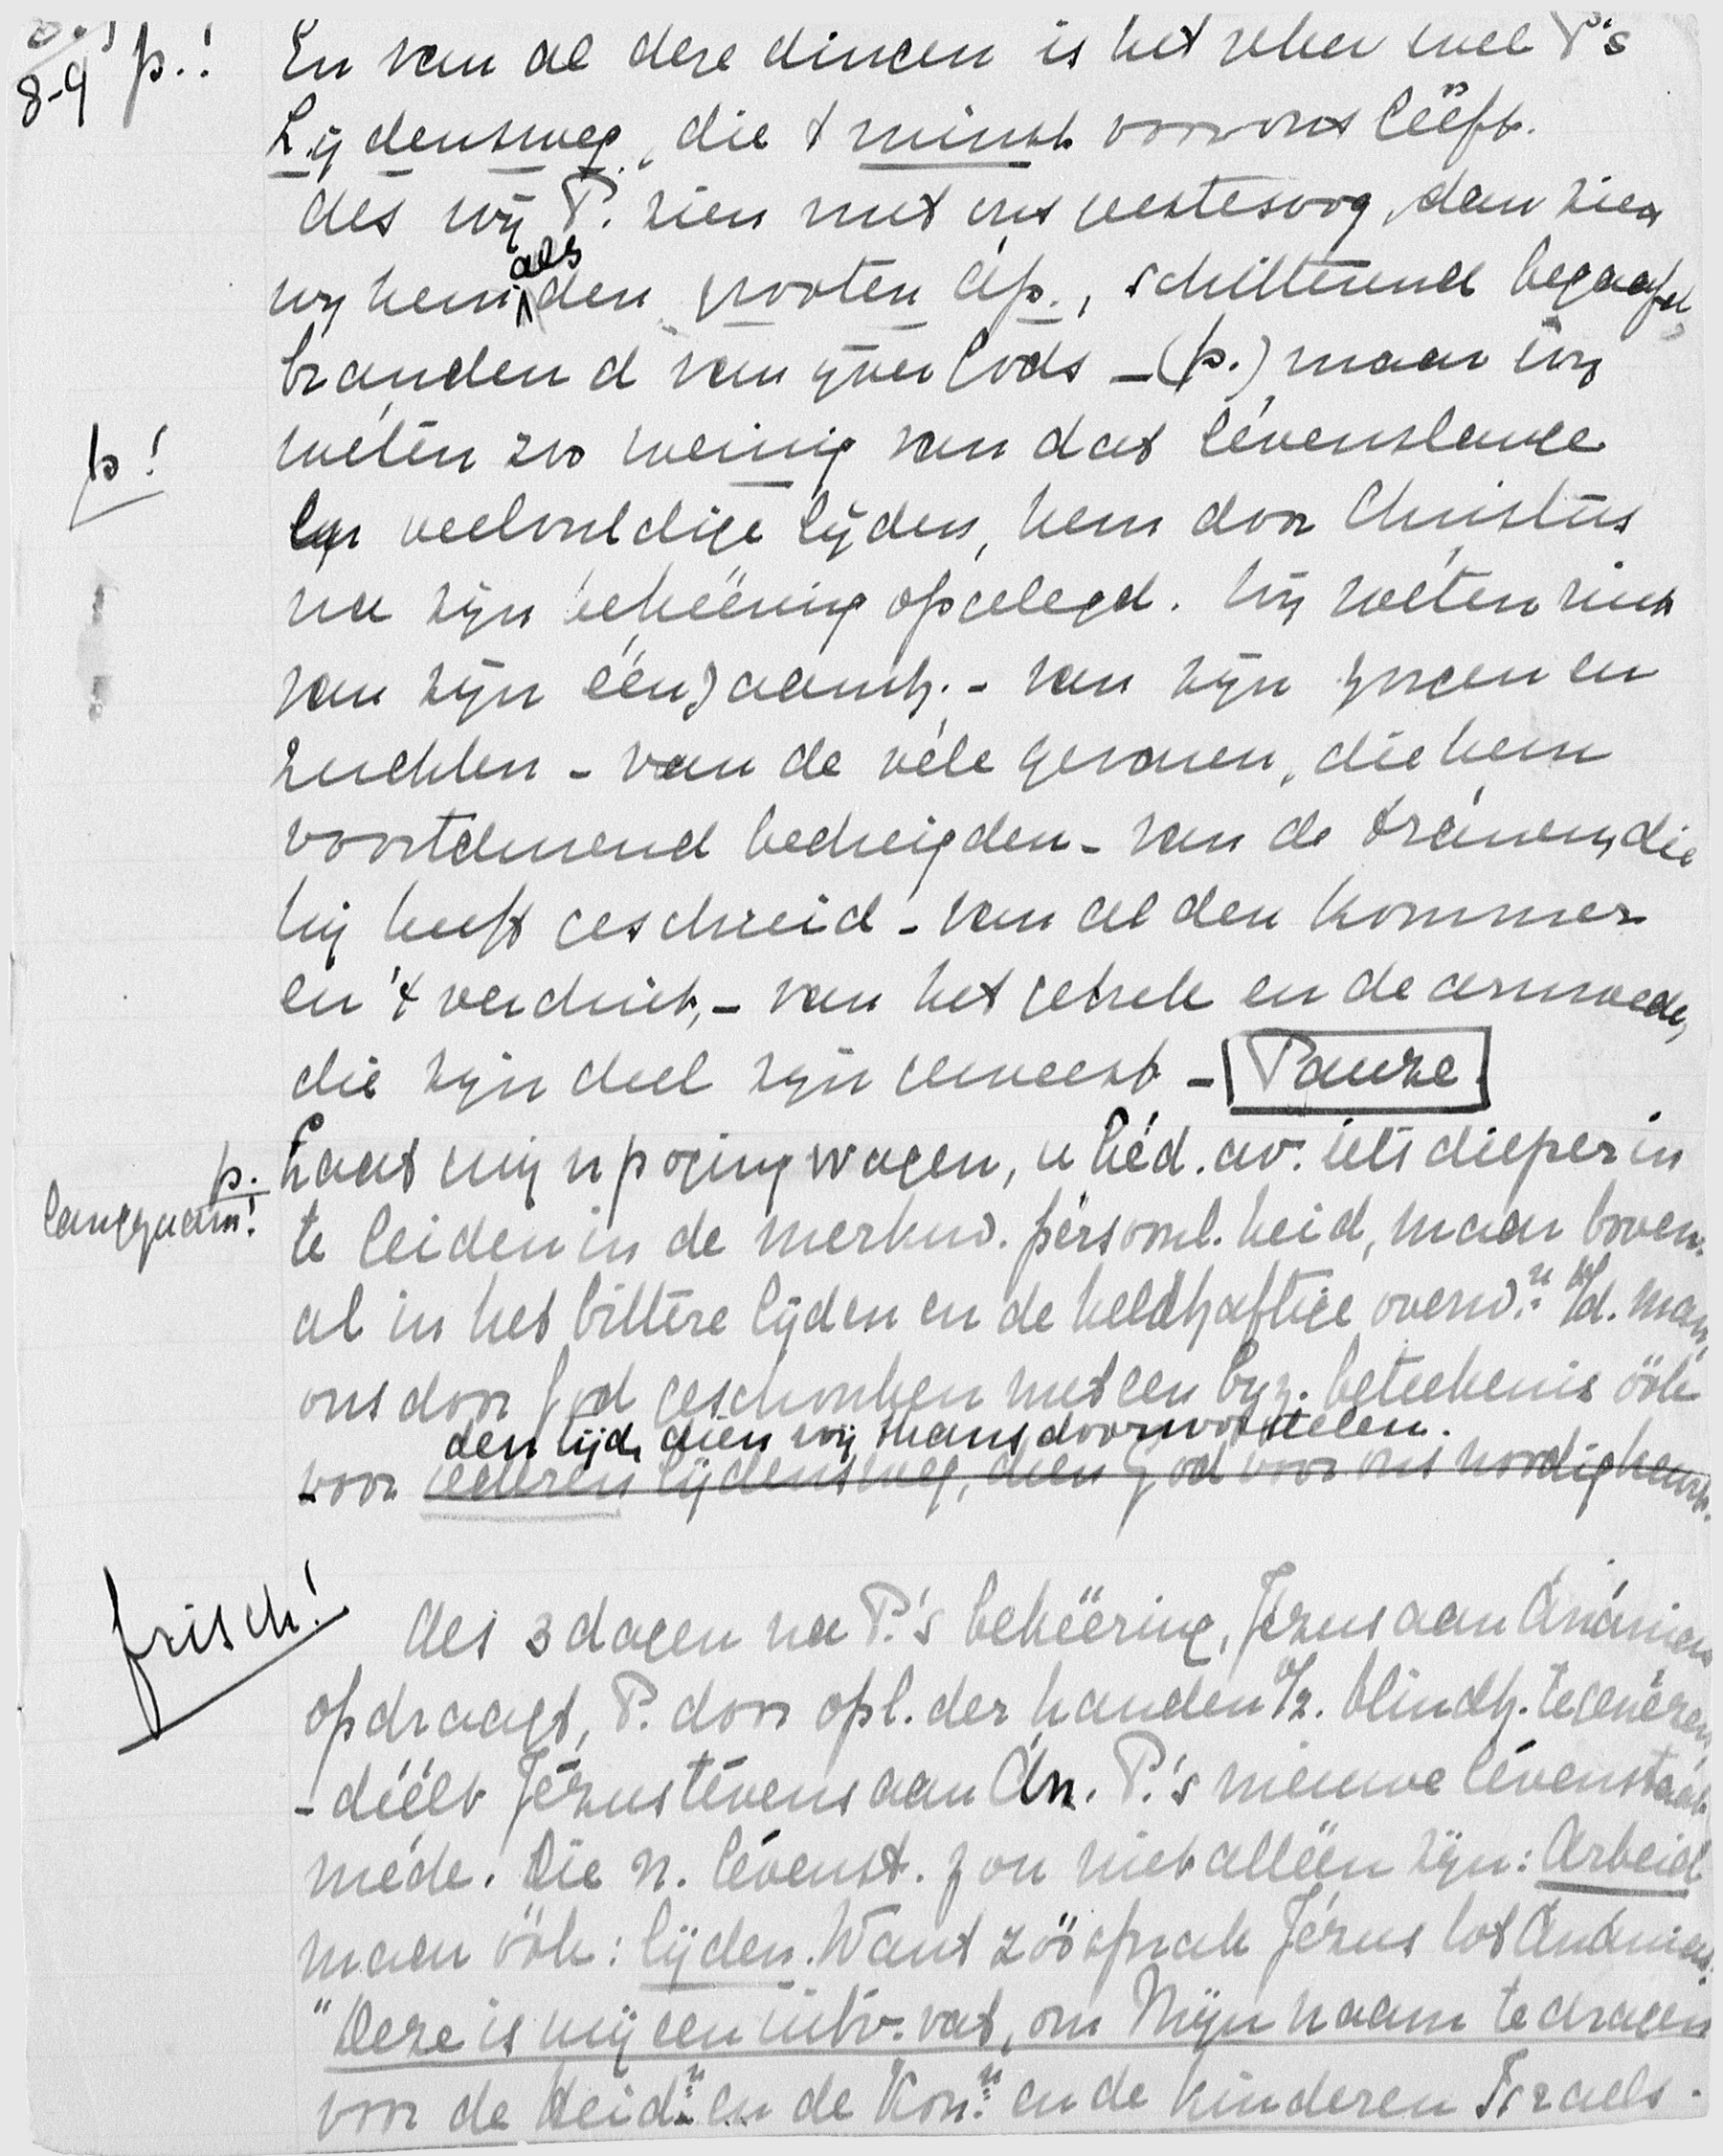 8-9 p.! En van al deze dingen is het zeker wel P's
Lijdensweg, die 't minst voor ons lééft.
Als wij P. zien met ons geestesoog, dan zien
wij hem als den grooten Ap., schitterend begaafd,
brandend van ijver Gods — (p.) maar wij
p! wéten zoo weinig van dat lévenslange
en veelvuldige lijden, hem door Christus
na zijn bekeering opgelegd. Wij wéten niet
van zijn éénzaamh. - van zijn zorgen en
zuchten - van de véle gevaren, die hem
voortdurend bedreigden - van de tranen, die
hij heeft geschreid - van al den kommer
en 't verdriet, - van het gebrek en de armoede,
die zijn deel zijn geweest - Pauze.
p. Laat mij 'n poging wagen, u hed. av. iets dieper in
langzaam! te leiden in de merkw. persoonl.heid, maar boven-
al in het bittere lijden en de heldhaftige overw.n v/d. man,
ons door God geschonken met een byz. beteekenis óók
den tijd, dien wij thans doorworstelen.
voor iederen lijdensweg, dien God voor ons noodig keurt.
frisch! Als 3 dagen na P.'s bekeering, Jezus aan Ananias
opdraagt, P. door opl. der handen v/z. blindh. te genezen,
- déélt Jézus tévens aan An. P.'s nieuwe lévenstaak
méde. Die n. lévenst. zou niet alléén zijn: Arbeid
maar óók: lijden. Want zóó sprak Jézus tot Ananias:
"Deze is mij een uitv. vat, om Mijn naam te dragen
voor de Heid.n en de Kon.n en de kinderen Israels.